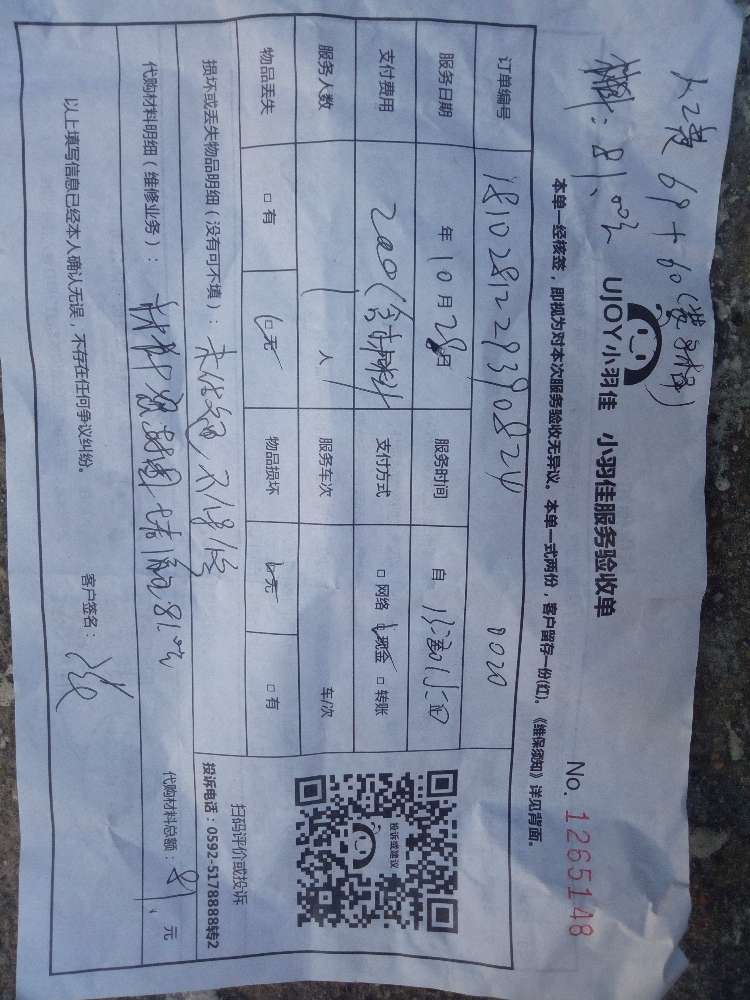 人工费 69 + 60(
材料：81.00元
UJOY小羽佳 小羽佳服务验收单
No. 1265148
本单一经核签，即视为对本次服务验收无异议。本单一式两份，客户留存一份(红)。《维保须知》详见背面。
订单编号 181028122939082 0020
服务日期 年10月28日 服务时间 自
支付费用 200(含材料 支付方式 □网络 □现金 □转账
服务人数 1人 服务车次 车/次
物品丢失 □有 □无 物品损坏 □无 □有
损坏或丢失物品明细（没有可不填）：
代购材料明细（维修业务）： 81.00元 代购材料总额：81. 元
以上填写信息已经本人确认无误，不存在任何争议纠纷。 客户签名：
投诉或建议
扫码评价或投诉
投诉电话：0592-5178888转2